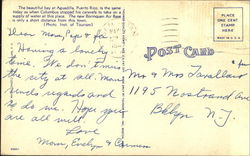 The beautiful bay at Aguadilla, Puerto Rico, is the same
today as when Columbus stopped his caravels to take on a
supply of water at this place. The new Borinquen Air Base
is only a short distance from this town.
(Photo: Inst. of Tourism)
POST CARD
PLACE
ONE CENT
STAMP
HERE
Dear Mom, Pop &
Having a lovely
time. We don't miss
the city at all. Mom
sends regards and
so do me. Hope you
are all well.
Love
Mom, Evelyn & Carmen
Mr & Mrs Tavallaro
1195 Nostrand Ave
Bklyn N.Y.